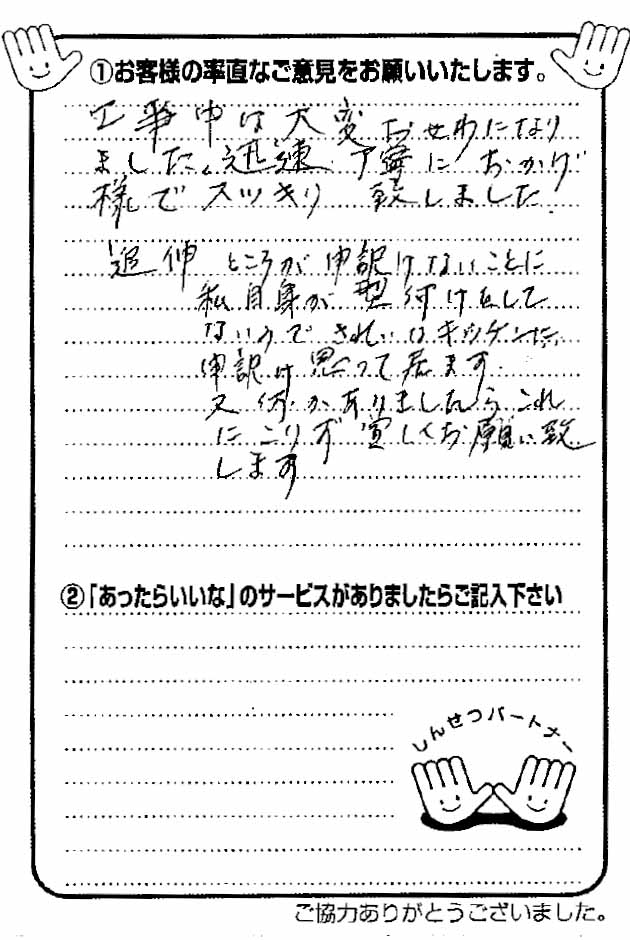 ①お客様の率直なご意見をお願いいたします。
工事中は大変おせわになり
ました。迅速 丁寧に おかげ
様でスッキリ 致しました
追伸 ところが申訳けないことに
私自身が 型付けをして
ないので きれいなキッチンに
申訳け思って居ます
又何かありましたらこれ
にこりず宜しくお願い致
します
②「あったらいいな」のサービスがありましたらご記入下さい
しんせつパートナー
ご協力ありがとうございました。